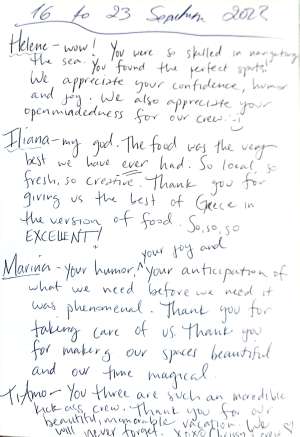 16 to 23 September 2022
Helene - wow! You were so skilled in navigating
the sea. You found the perfect spots!
We appreciate your confidence, humor
and joy. We also appreciate your
openmindedness for our crew. :)
Iliana - my god. The food was the very
best we have ever had. So local, so
fresh, so creative. Thank you for
giving us the best of Greece in
the version of food. So, so, so
EXCELLENT!
your joy and
Marina - your humor, ^ your anticipation of
what we need before we need it
was phenomenal. Thank you for
taking care of us. Thank you
for making our spaces beautiful
and our time magical.
Ti Amo - You three are such an incredible
kick ass crew. Thank you for our
beautiful, memorable vacation. We
will never forget.